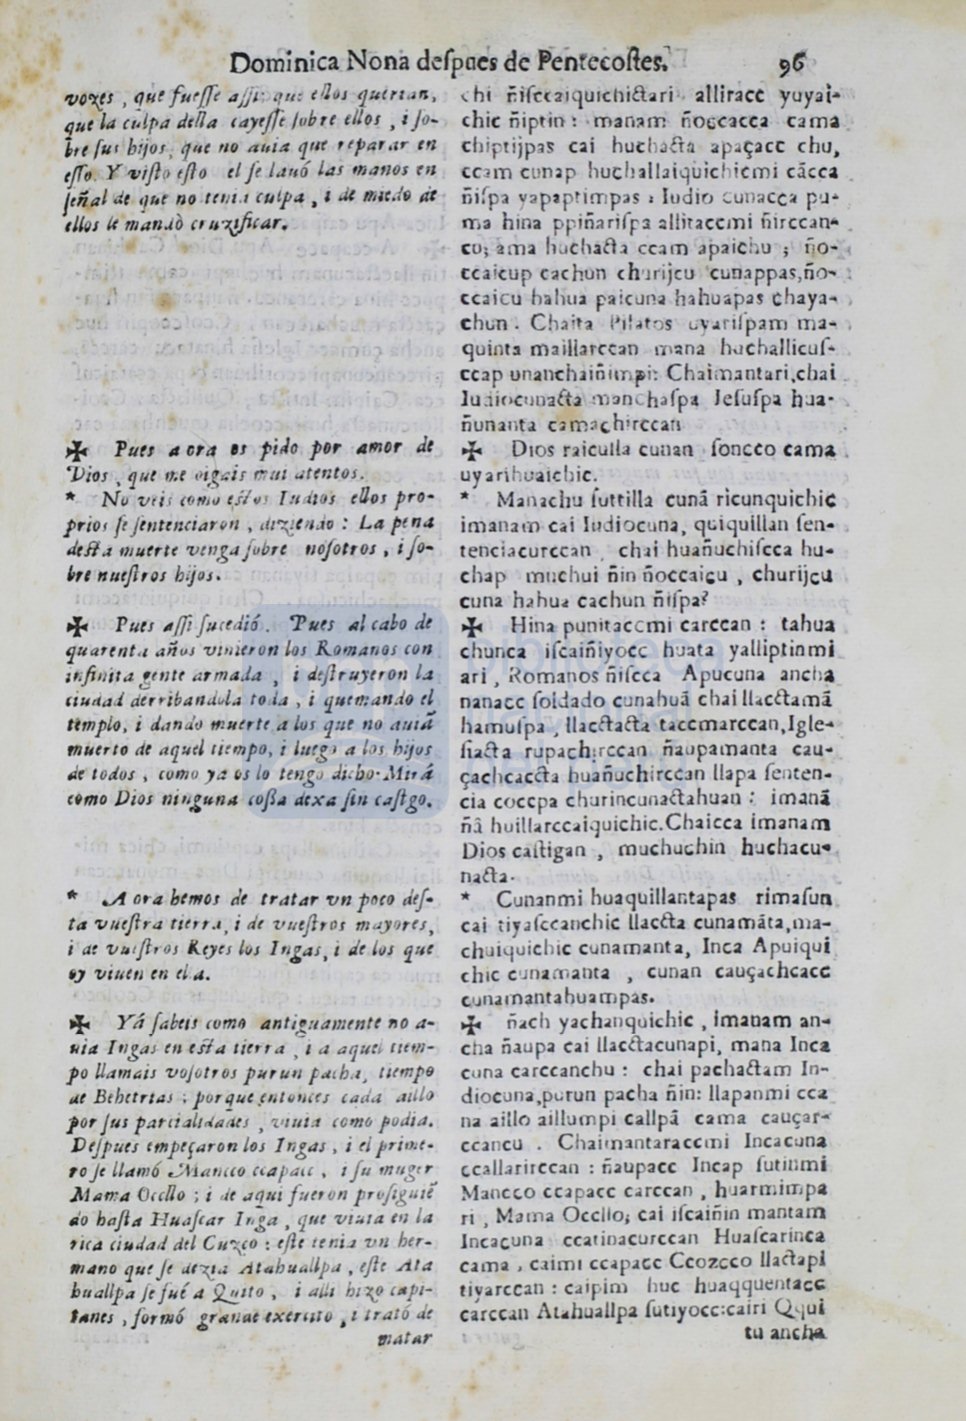 Dominica Nona deſpues de Pentecoſtes. 96
vozes, que fueſſe aſſi: que ellos querian,
que la culpa deſla cayeſſe ſobre ellos, i ſo-
bre ſus hijos, que no auia que reparar en
eſſo. Y viſto eſto el ſe lauó las manos en
ſeñal de que no tenia culpa, i de miedo de
ellos le mandò cruzificar.
✠ Pues aora os pido por amor de
Dios, que me oigais mui atentos.
* No veis como eſtos Iudios ellos pro-
prios ſe ſentenciaron, diziendo: La pena
deſta muerte venga ſobre noſotros, i ſo-
bre nueſtros hijos.
✠ Pues aſſi ſucedió. Pues al cabo de
quarenta años vinieron los Romanos con
infinita gente armada, i deſtruyeron la
ciudad derribandola toda, i quemando el
templo, i dando muerte a los que no auiã
muerto de aquel tiempo, i luego a los hijos
de todos, como ya os lo tengo dicho. Mirá
como Dios ninguna coſſa dexa ſin caſtgo.
* Aora hemos de tratar vn poco deſ-
ta vueſtra tierra, i de vueſtros mayores,
i de vueſtros Reyes los Ingas, i de los que
oy viuen en ela.
✠ Yá ſabeis como antiguamente no a-
uia Ingas en eſta tierra, i a aquel tiem-
po llamais voſotros purun pacha, tiempo
de Behetrias; porque entonces cada aillo
por ſus parcialidades, viuia como podia.
Deſpues empeçaron los Ingas, i el prime-
ro ſe llamó Mancco ccapacc, i ſu muger
Mama Occllo; i de aqui fueron proſiguiẽ
do haſta Huaſcar Inga, que viuia en la
rica ciudad del Cuzco: eſte tenia vn her-
mano que ſe dezia Atahuallpa, eſte Ata
huallpa ſe fué a Quito, i alli hizo capi-
tanes, formó grande exercito, i trató de
matar
chi ñiſccaiquichictari alliracc yuyai-
chic ñiptin: manam ñoccacca cama
chiptijpas cai huchacta apaçacc chu,
ccam cunap huchallaiquichicmi cãcca
ñiſpa yapaptimpas: Iudio cunacca pu-
ma hina ppiñariſpa allitaccmi ñirccan-
cu; ama huchacta ccam apaichu; ño-
ccaicup cachun churijcu cunappas, ño-
ccaicu hahua paicuna hahuapas chaya-
chun. Chaita Pilatos uyariſpam ma-
quinta maillarccan mana huchallicuſ-
ccap unanchaiñimpi: Chaimantari, chai
Iudiocunacta manchaſpa Jeſuſpa hua-
ñunanta camachirccan
✠ Dios raiculla cunan ſoncco cama
uyarihuaichic.
* Manachu ſuttilla cunã ricunquichic
imanam cai Iudiocuna, quiquillan ſen-
tenciacurccan, chai huañuchiſcca hu-
chap muchui ñin ñoccaicu, churijcu
cuna hahua cachun ñiſpa?
✠ Hina punitaccmi carccan: tahua
chunca iſcaiñiyocc huata yalliptinmi
ari, Romanos ñiſcca Apucuna ancha
nanacc ſoldado cunahuã chai llacctamã
hamuſpa, llacctacta taccmarccan, Igle-
ſiacta rupachirccan ñaupamanta cau-
çachcaccta huañuchirccan llapa ſenten-
cia coccpa churincunactahuan: imanã
ñã huillarccaiquichic. Chaicca imanam
Dios caſtigan, muchuchin huchacu-
nacta.
* Cunanmi huaquillantapas rimaſun
cai tiyaſccanchic llaccta cunamãta, ma-
chuiquichic cunamanta, Inca Apuiqui
chic cunamanta, cunan cauçachcacc
cunamantahuampas.
✠ ñach yachanquichic, imanam an-
cha ñaupa cai llacctacunapi, mana Inca
cuna carccanchu: chai pachactam In-
diocuna, purun pacha ñin: llapanmi cca
na aillo aillumpi callpã cama cauçar-
ccancu. Chaimantaraccmi Incacuna
ccallarirccan: ñaupacc Incap ſutinmi
Mancco ccapacc carccan, huarmimpa
ri, Mama Occllo; cai iſcaiñin mantam
Incacuna ccatinacurccan Huaſcarinca
cama, caimi ccapacc Ccozcco llactapi
tiyarccan: caipim huc huaqquentacc
carccan Atahuallpa ſutiyocc: cairi Qqui
tu ancha